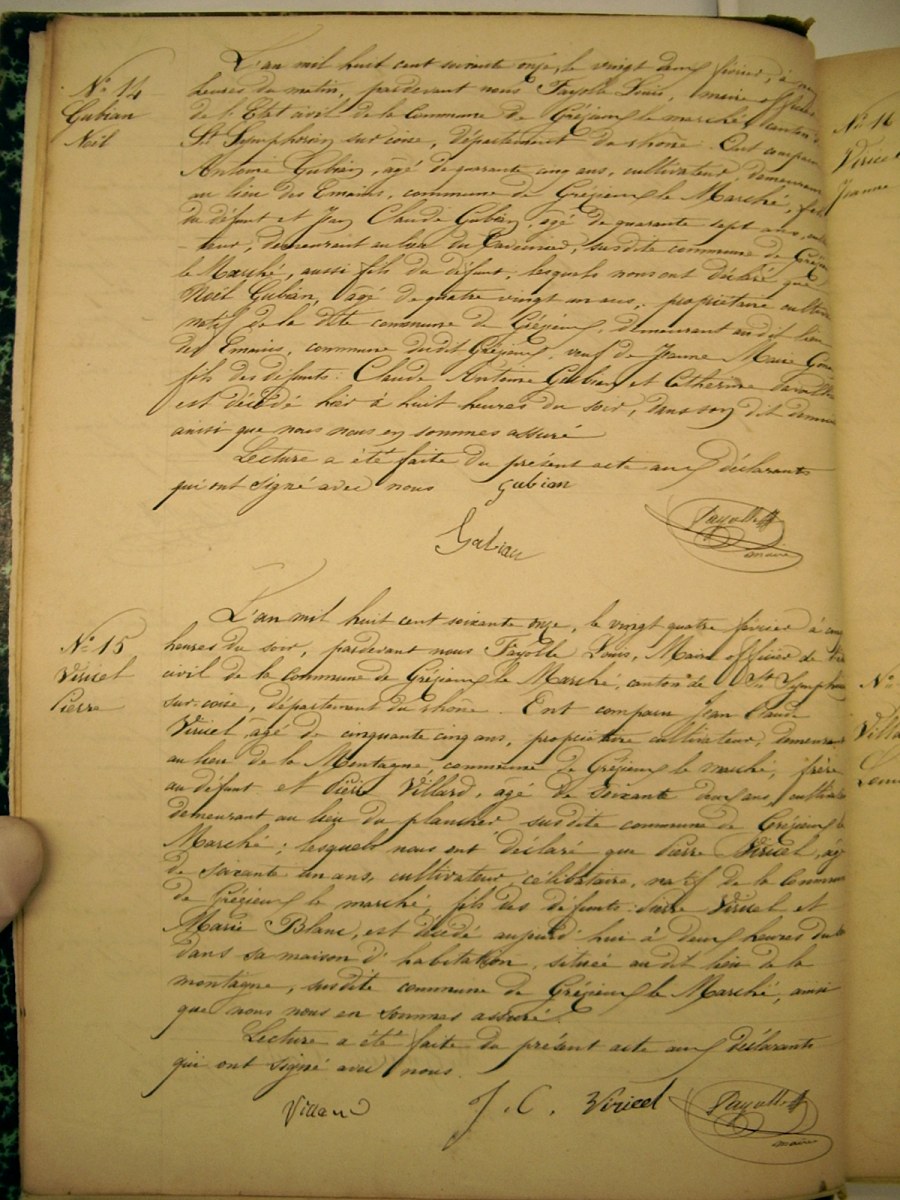 N° 14
Gubian
Noël
L'an mil huit cent soixante onze, le vingt deux février, à
heures du matin, pardevant nous Fayolle Louis, maire officier
de l'Etat civil de la Commune de Grézieux le marché, canton de
St Symphorien sur coise, département du rhône. Ont comparu
Antoine Gubian, âgé de quarante cinq ans, cultivateur, demeurant
au lieu des Emains, commune de Grézieux le Marché, fils
du défunt et Jean Claude Gubian, âgé de quarante sept ans,
teur, demeurant au lieu du susdite commune de
le Marché, aussi fils du défunt, lesquels nous ont déclaré que
Noël Gubian, âgé de quatre vingt un ans, propriétaire
natif de la dite commune de Grézieux, demeurant au dit lieu
des Emains, commune dudit Grézieux, veuf de Jeanne Marie
fils des défunts : Claude Antoine Gubian et Catherine
est décédé hier à huit heures du soir, dans son dit
ainsi que nous nous en sommes assuré
Lecture a été faite du présent acte aux déclarants
qui ont signé avec nous Gubian
Gubian
Fayolle
maire
N° 15
Viricel
Pierre
L'an mil huit cent soixante onze, le vingt quatre février à
heures du soir, pardevant nous Fayolle Louis, Maire officier de
civil de la commune de Grézieux le Marché, canton de St Symphorien
sur-coise, département du rhône. Ont comparu Jean Claude
Viricel, âgé de cinquante cinq ans, propriétaire cultivateur, demeurant
au lieu de la Montagne, commune de Grézieux le marché, frère
au défunt et Pierre Villard, âgé de soixante deux ans,
demeurant au lieu du plancher susdite commune de Grézieux le
Marché ; lesquels nous ont déclaré que Pierre Viricel, âgé
de soixante un ans, cultivateur, célibataire, natif de la Commune
de Grézieux le marché, fils des défunts : Pierre Viricel et
Marie Blanc, est décédé aujourd'hui à deux heures du
dans sa maison d'habitation, située au dit lieu de la
montagne, susdite commune de Grézieux le Marché, ainsi
que nous nous en sommes assuré.
Lecture a été faite du présent acte aux déclarants
qui ont signé avec nous.
Villard
J. C. Viricel
Fayolle
maire
N° 16
Viricel
Jeanne
N°